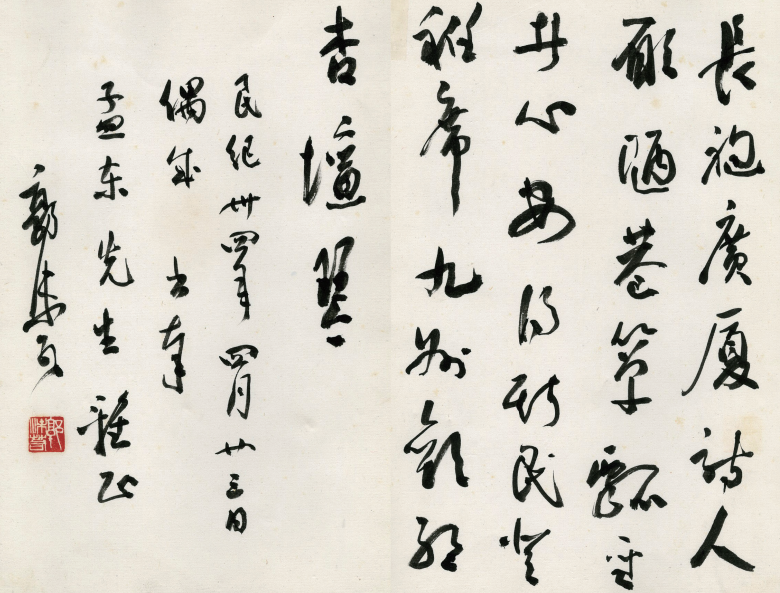 長袍廣廈詩人
願陋巷簞瓢聖
者心安得斯民登
衽席九州歡聽
杏壇琴
民紀卅四年四月廿三日
偶成 書奉
孟東先生雅正
郭沫若
郭沫若